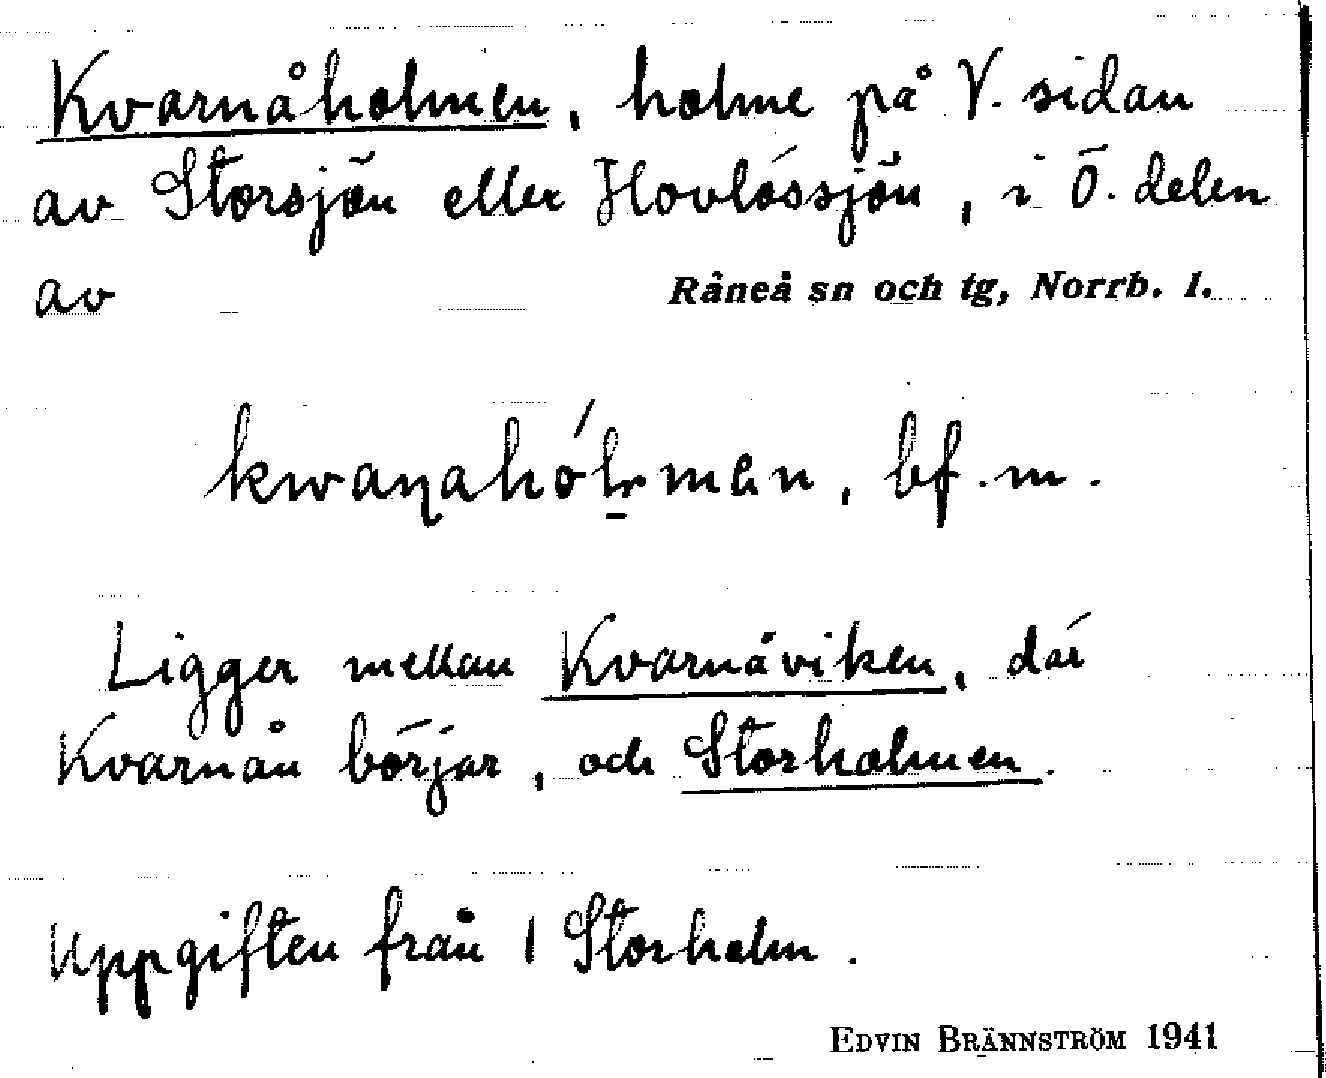 Kvarnåholmen, holme på V. sidan
av Storsjön eller Hovlössjön, i Ö. delen
av Råneå sn och tg, Norrb. l.
kwaṇahólmen, bf. m.
Ligger mellan Kvarnåviken, där
Kvarnån börjar, och Storholmen.
Uppgiften från 1 Storholm.
EDVIN BRÄNNSTRÖM 1941